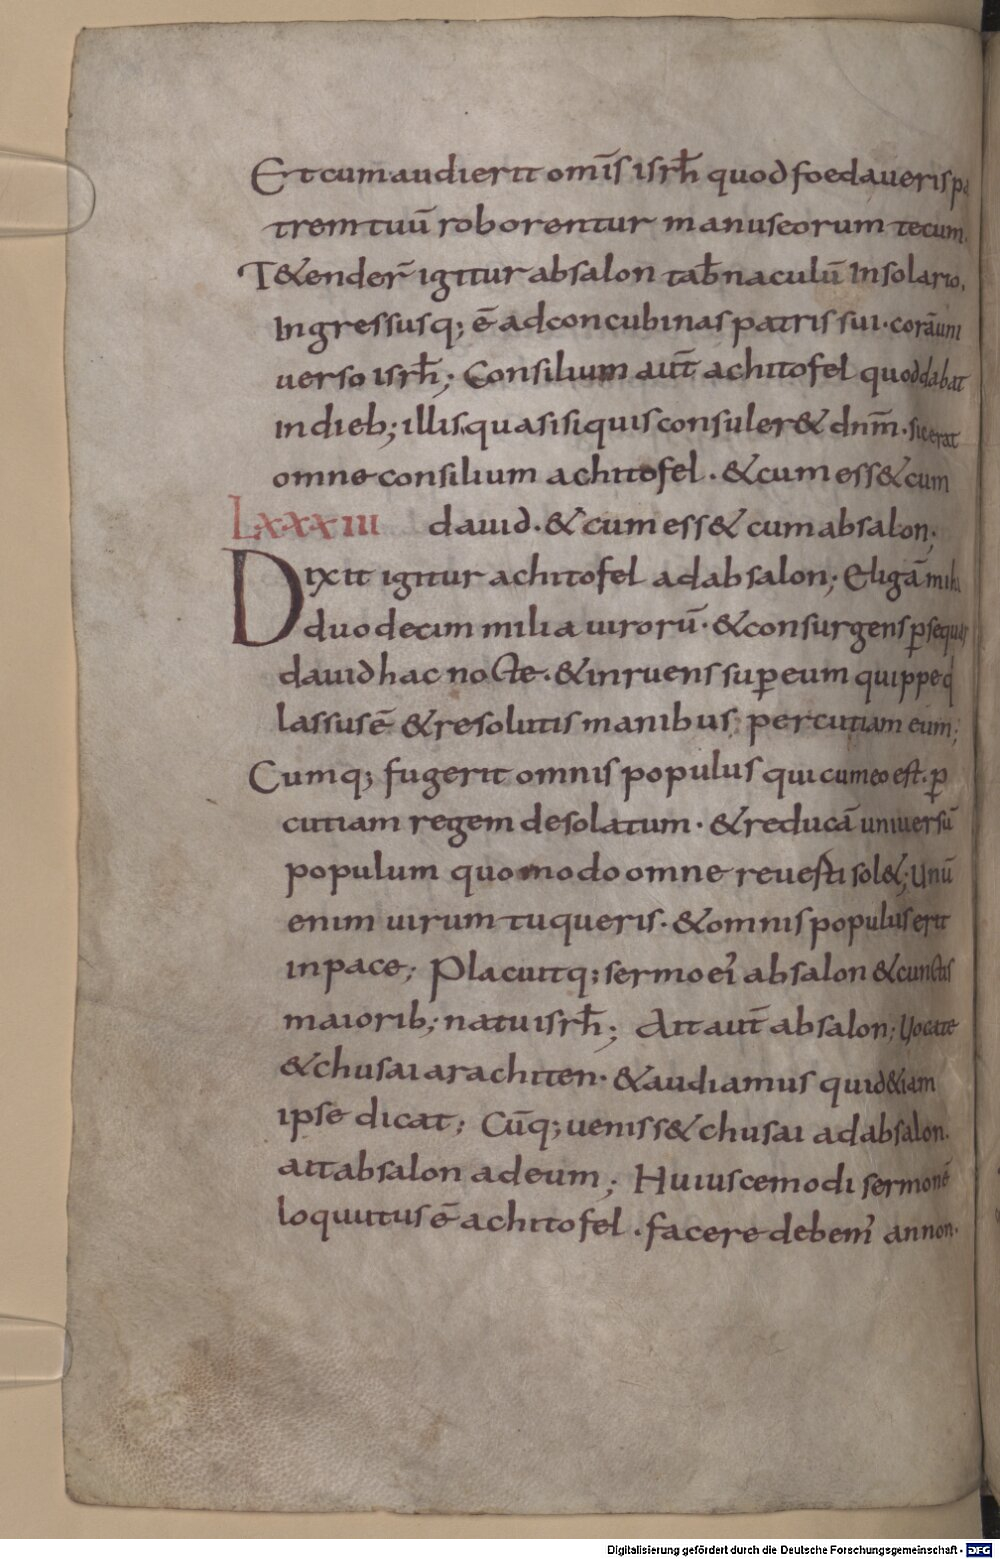 Et cum audierit om̄is isrl̄ quod foedaueris pa
trem tuū roborentur manus eorum tecum.
T&ender̄ igitur absalon tab̄naculū In solario.
Ingressusq; ē ad concubinas patris sui· corā uni
uerso isrl̄; Consilium aut̄ achitofel quod dabat
in dieb; illis quasi si quis consuler& dnm̄· sic erat
omne consilium achitofel· & cum ess& cum
LXXXIII dauid· & cum ess& cum absalon;
Dixit igitur achitofel ad absalon; Eligā mihi
duodecim milia uirorū· & consurgens p̱sequar
dauid hac nocte· & inruens sup̱ eum quippe q
lassus ē & resolutis manibus percutiam eum;
Cumq; fugerit omnis populus qui cum eo est· p̱
cutiam regem desolatum· & reducā uniuersū
populum quomodo omne reuesti sol&; Unū
enim uirum tu queris· & omnis populus erit
in pace; Placuitq; sermo ei absalon & cunctis
maiorib; natu isrl̄; Ait aut̄ absalon; Uocate
& chusai arachiten· & audiamus quid &iam
ipse dicat; Cūq; ueniss& chusai ad absalon·
ait absalon ad eum; Huiuscemodi sermonē
loquutus ē achitofel· facere debem᾽ an non·
Digitalisierung gefördert durch die Deutsche Forschungsgemeinschaft - DFG